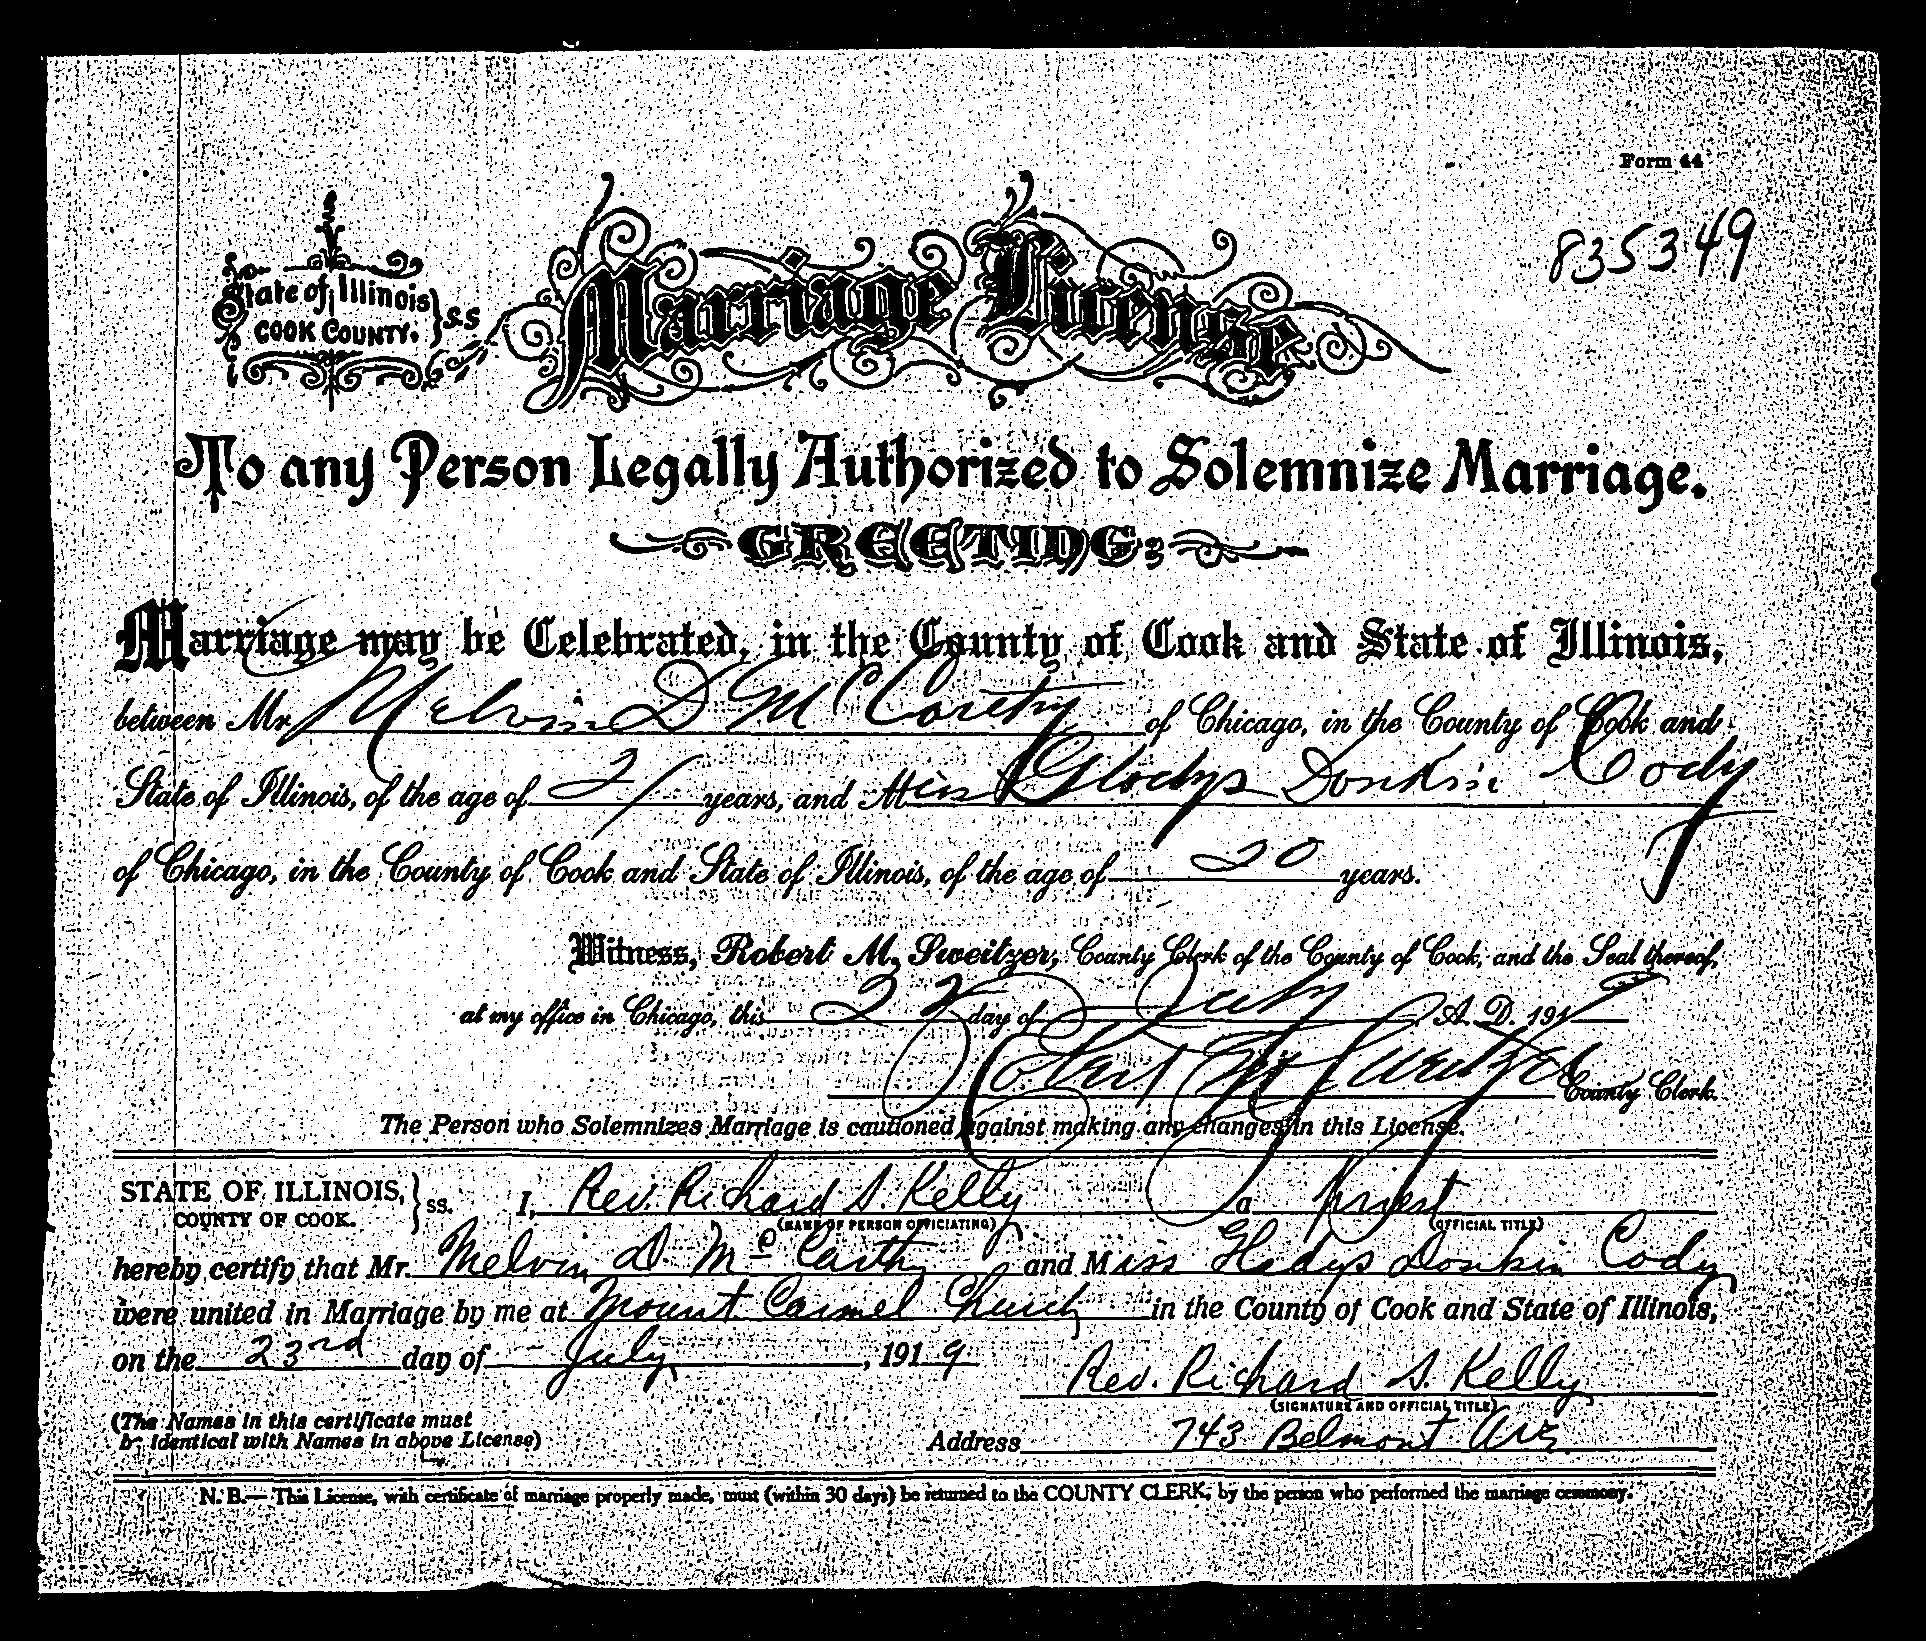 Form 44
835349
State of Illinois
COOK COUNTY. } S.S
Marriage License
To any Person Legally Authorized to Solemnize Marriage.
GREETING:
Marriage may be Celebrated, in the County of Cook and State of Illinois,
between Mr. Melvin D McCarthy of Chicago, in the County of Cook and
State of Illinois, of the age of 21 years, and Miss Gladys Donkin Cody
of Chicago, in the County of Cook and State of Illinois, of the age of 20 years.
Witness, Robert M. Sweitzer, County Clerk of the County of Cook, and the Seal thereof,
at my office in Chicago, this 22 day of July A. D. 1919
Robert M. Sweitzer County Clerk.
The Person who Solemnizes Marriage is cautioned against making any changes in this License.
STATE OF ILLINOIS, } ss. I, Rev. Richard S. Kelly a Priest
COUNTY OF COOK. (NAME OF PERSON OFFICIATING) (OFFICIAL TITLE)
hereby certify that Mr. Melvin D. McCarthy and Miss Gladys Donkin Cody
were united in Marriage by me at Mount Carmel Church in the County of Cook and State of Illinois,
on the 23rd day of July, 1919
Rev. Richard S. Kelly
(SIGNATURE AND OFFICIAL TITLE)
(The Names in this certificate must
be identical with Names in above License)
Address 743 Belmont Ave.
N. B.— This License, with certificate of marriage properly made, must (within 30 days) be returned to the COUNTY CLERK, by the person who performed the marriage ceremony.